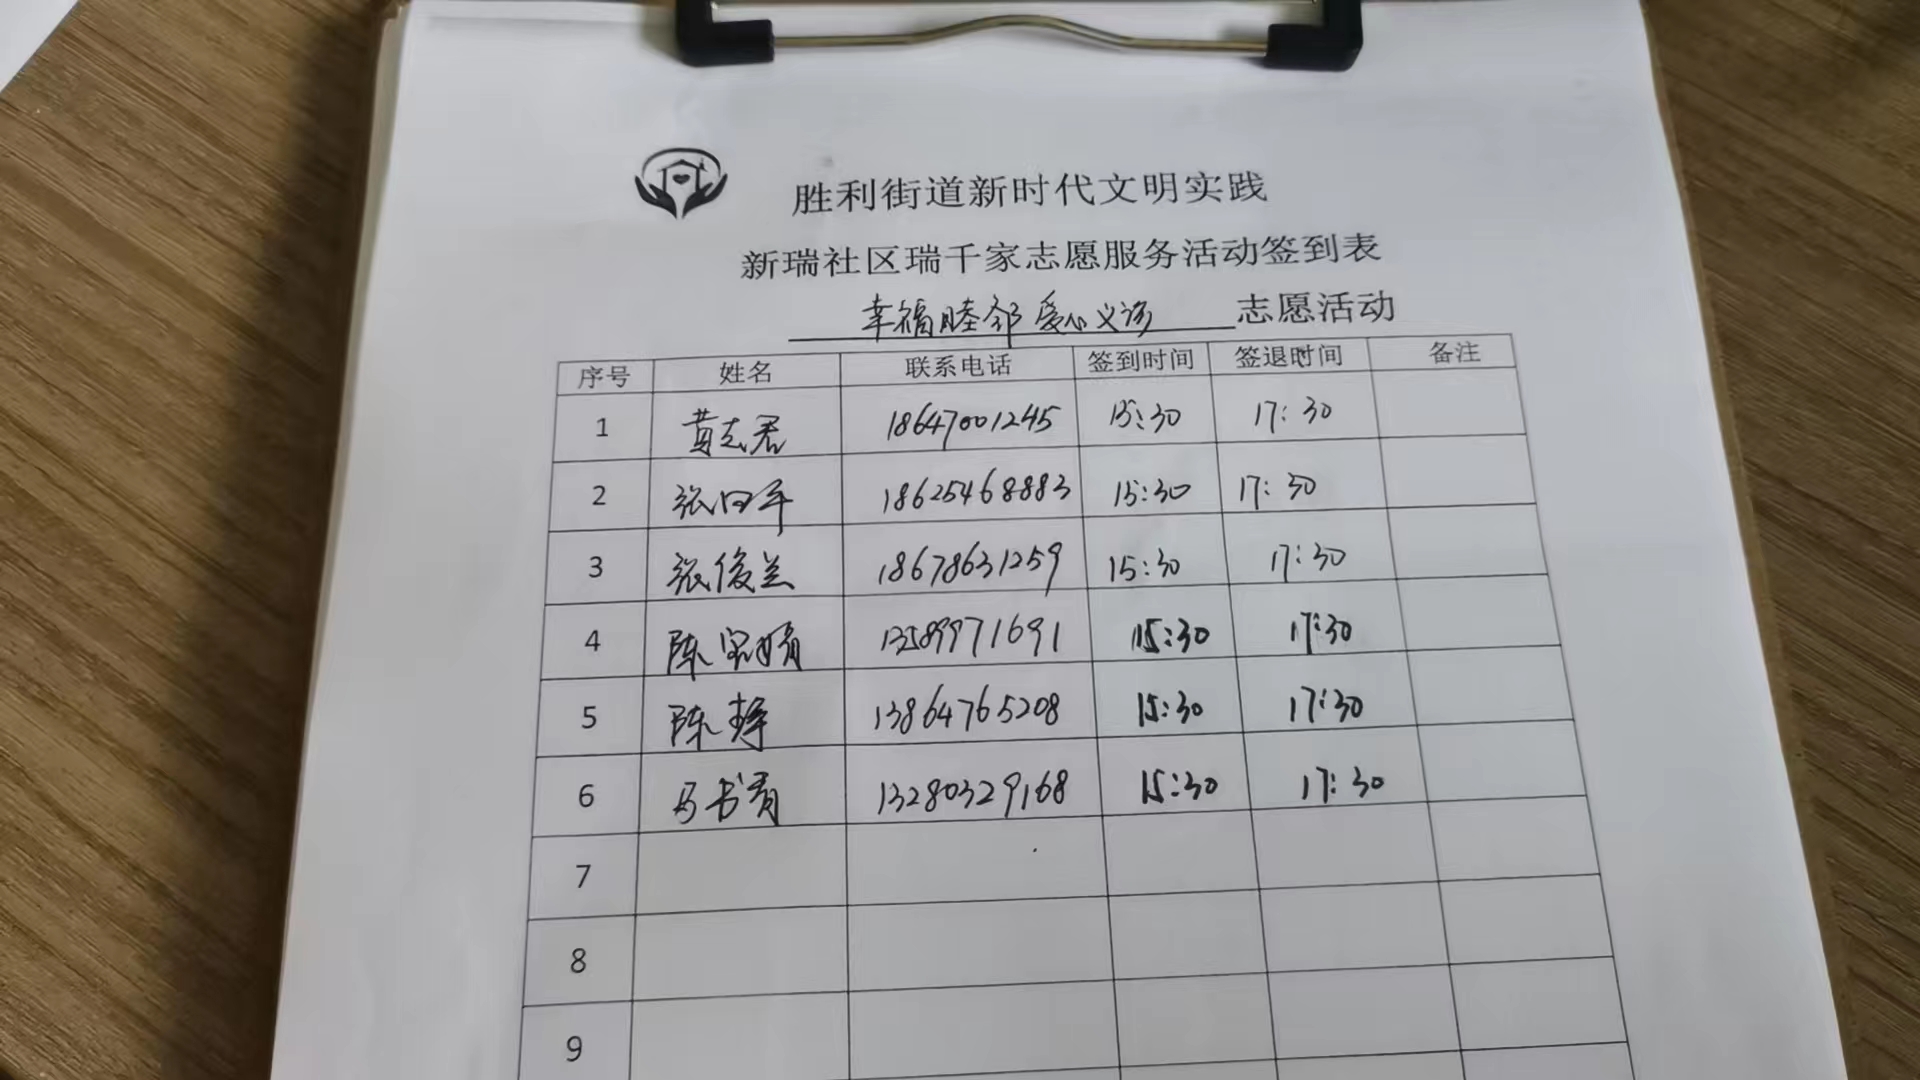 胜利街道新时代文明实践
新瑞社区瑞千家志愿服务活动签到表
幸福睦邻 爱心义诊 志愿活动
序号 姓名 联系电话 签到时间 签退时间 备注
1 黄志君 18647001245 15:30 17:30
2 张 18625468883 15:30 17:30
3 张俊兰 18678631259 15:30 17:30
4 陈 13589971691 15:30 17:30
5 陈静 13864765208 15:30 17:30
6 马书青 13280329168 15:30 17:30
7
8
9